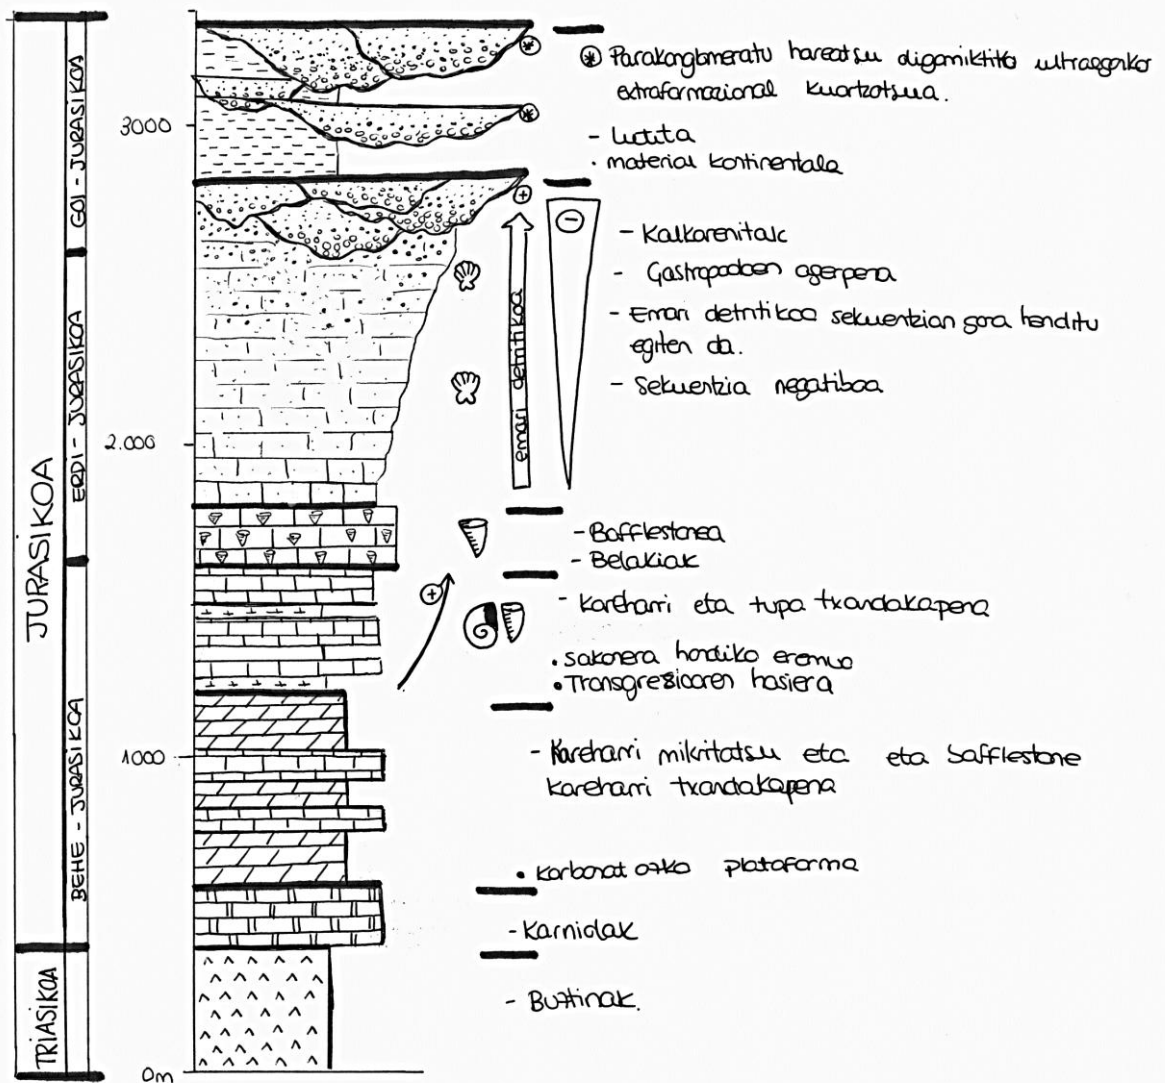 JURASIKOA
TRIASIKOA
GOI - JURASIKOA
ERDI - JURASIKOA
BEHE - JURASIKOA
3000
2.000
1000
0m
emari detritikoa
* Parakonglomeratu hareatsu oligomiktiko ultraegonko
extraformazional kuartzotsua.
- Lutita
· material kontinentala
- Kalkarenitak
- Gastropodoen agerpena
- Emari detritikoa sekuentzian gora handitu
egiten da.
- Sekuentzia negatiboa
- Bafflestonea
- Belakiak
- Kareharri eta tupa txandakapena
• Sakonera handiko eremua
• Transgresioaren hasiera
- Kareharri mikritatsu eta eta bafflestone
kareharri txandakapena
• Karbonatozko plataforma
- Karniolak
- Buztinak.